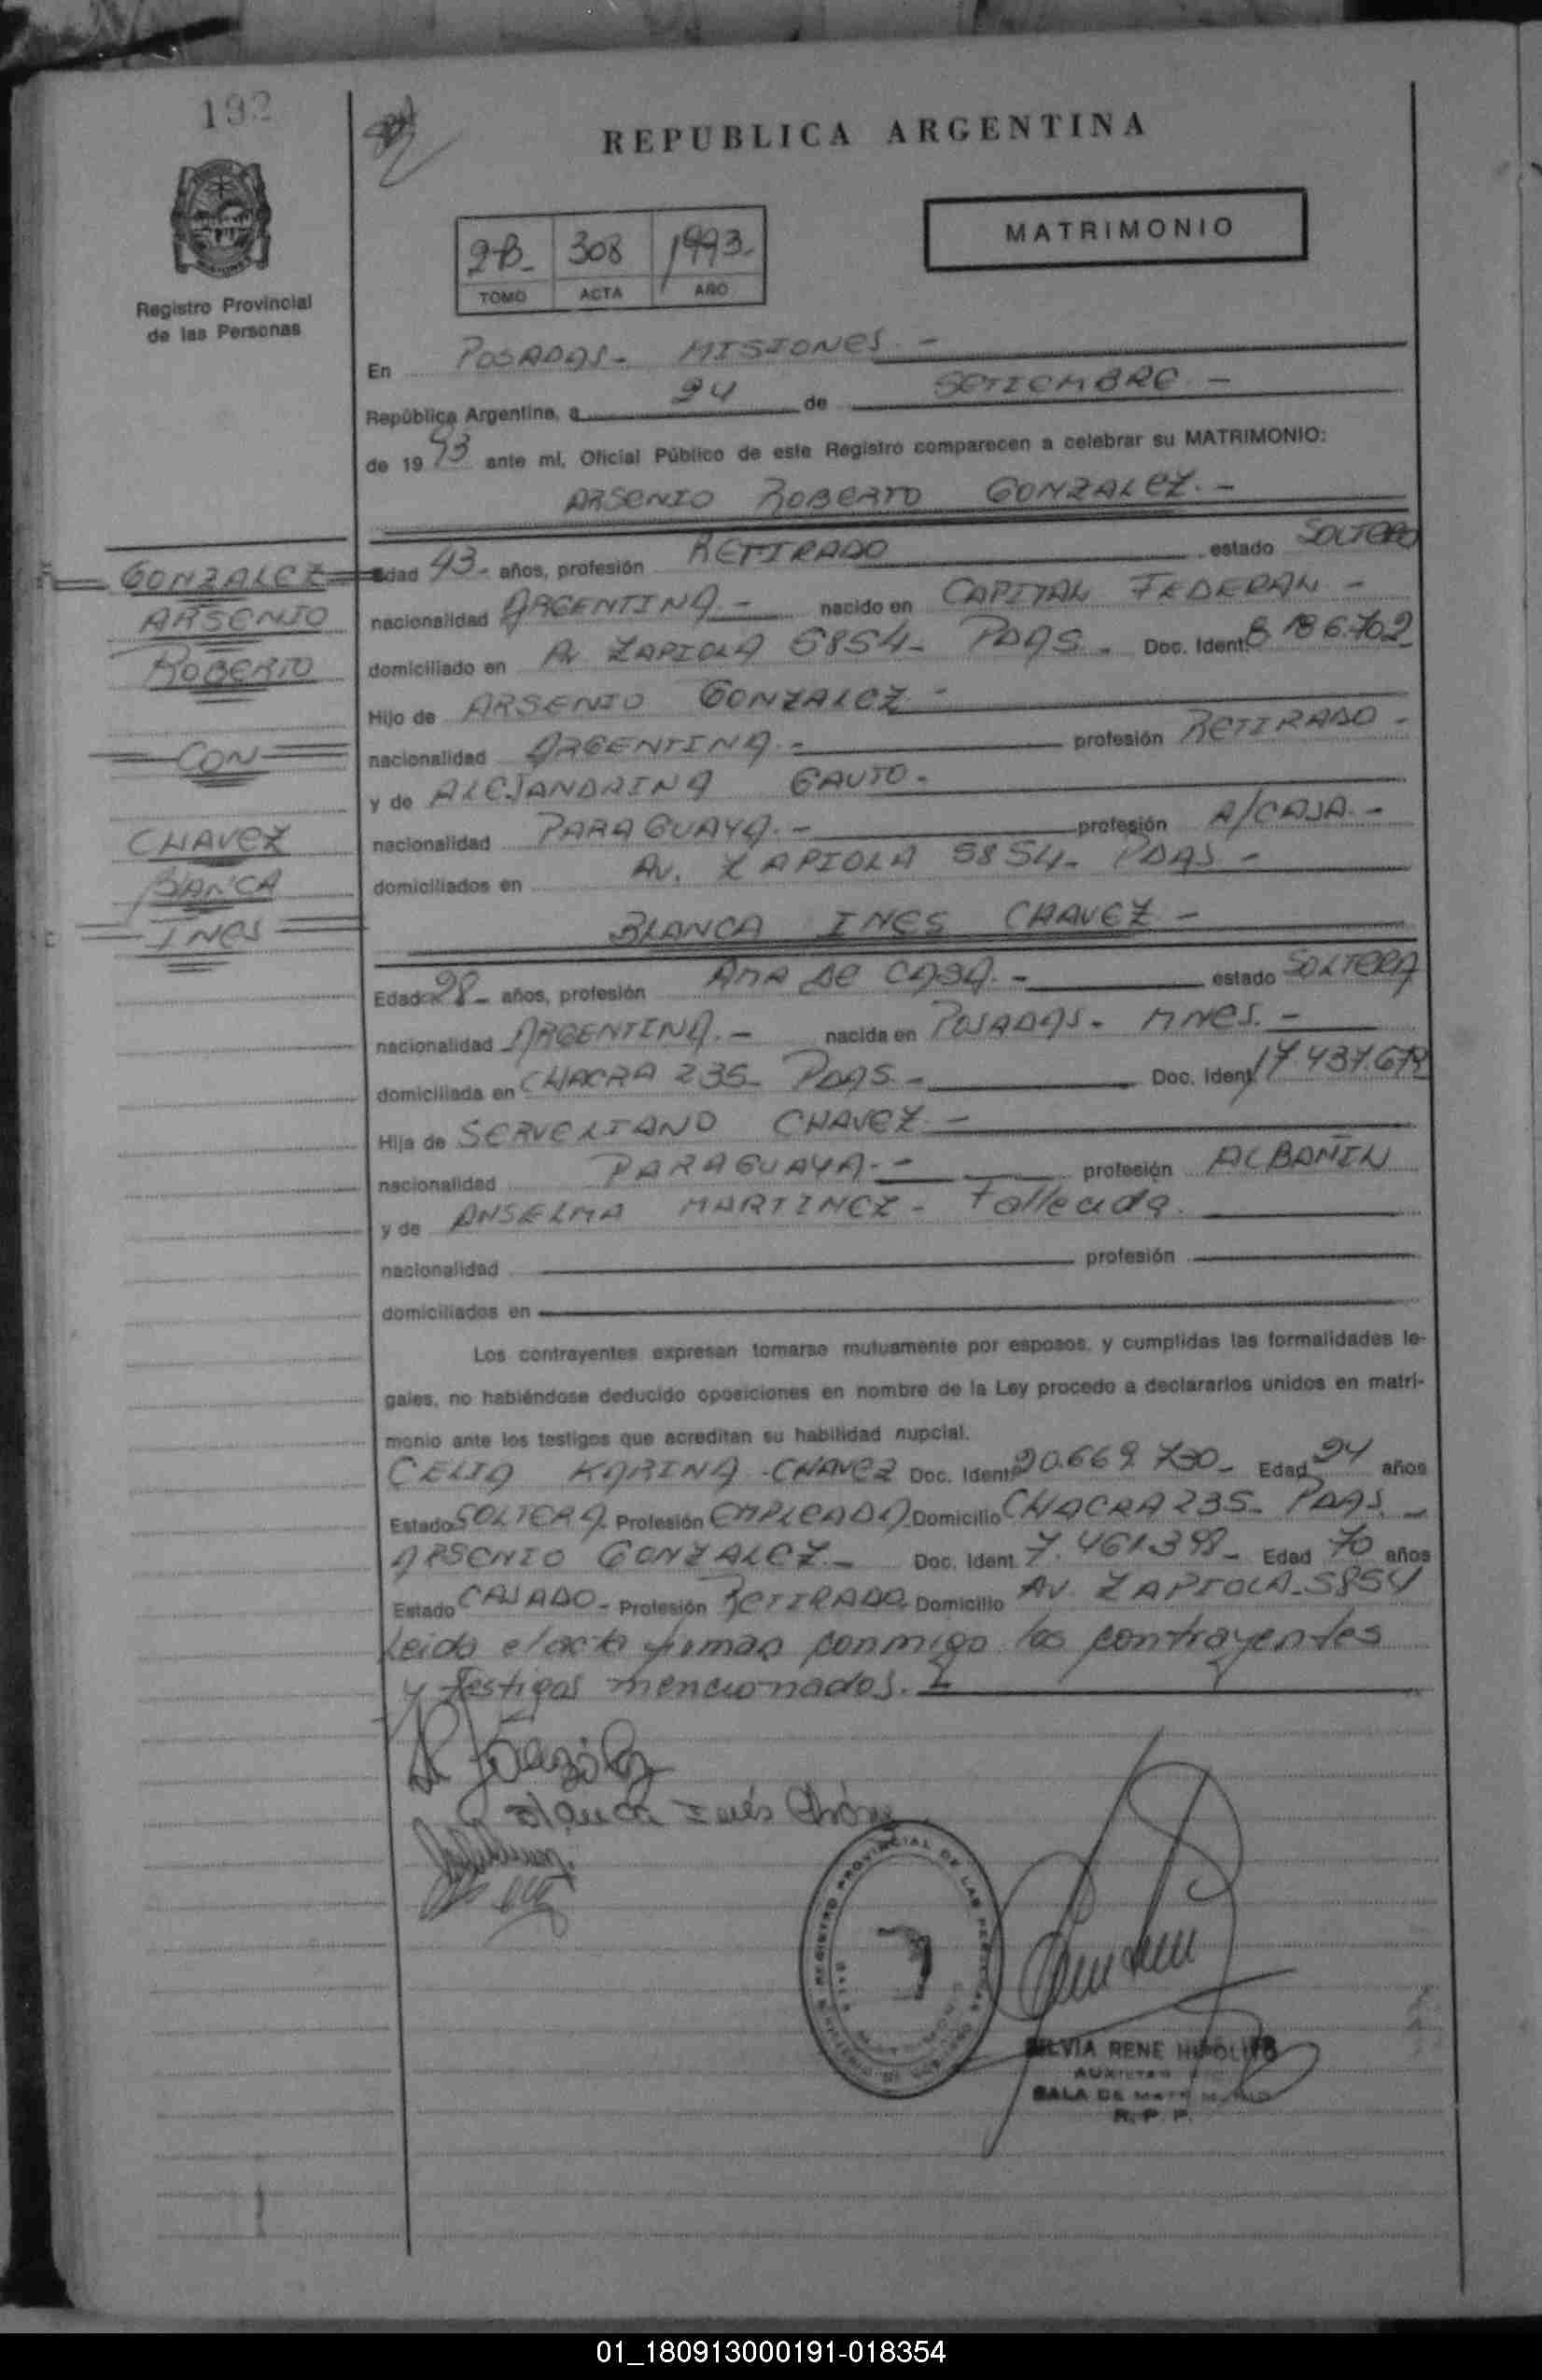 192
REPUBLICA ARGENTINA
Registro Provincial
de las Personas
2-B- 308 1993.-
TOMO ACTA AÑO
MATRIMONIO
En POSADAS- MISIONES.-
República Argentina, a 24 de SETIEMBRE.-
de 1993 ante mi, Oficial Público de este Registro comparecen a celebrar su MATRIMONIO:
ARSENIO ROBERTO GONZALEZ.-
GONZALEZ
ARSENIO
ROBERTO
CON
CHAVEZ
BLANCA
INES
Edad 43- años, profesión RETIRADO estado SOLTERO
nacionalidad ARGENTINA.- nacido en CAPITAL FEDERAL-
domiciliado en Av ZAPIOLA 5854- PDAS- Doc. Ident. 8.186.702
Hijo de ARSENIO GONZALEZ-
nacionalidad ARGENTINA.- profesión RETIRADO-
y de ALEJANDRINA GAUTO-
nacionalidad PARAGUAYA.- profesión A/CASA.-
domiciliados en AV. ZAPIOLA 5854- PDAS-
BLANCA INES CHAVEZ-
Edad 28- años, profesión AMA DE CASA.- estado SOLTERA
nacionalidad ARGENTINA.- nacida en POSADAS- MNES.-
domiciliada en CHACRA 235- PDAS- Doc. Ident. 17.437.679
Hija de SERVELIANO CHAVEZ-
nacionalidad PARAGUAYA.- profesión ALBAÑIL
y de ANSELMA MARTINEZ- Fallecida.
nacionalidad profesión
domiciliados en
Los contrayentes expresan tomarse mutuamente por esposos, y cumplidas las formalidades le-
gales, no habiéndose deducido oposiciones en nombre de la Ley procedo a declararlos unidos en matri-
monio ante los testigos que acreditan su habilidad nupcial.
CELIA KARINA CHAVEZ Doc. Ident. 20.669.730- Edad 24 años
Estado SOLTERA Profesión EMPLEADA Domicilio CHACRA 235- PDAS.-
ARSENIO GONZALEZ- Doc. Ident. 7.461.398- Edad 70 años
Estado CASADO- Profesión RETIRADO Domicilio AV. ZAPIOLA-5854
Leida el acta firman conmigo los contrayentes
y testigos mencionados.
Blanca Inés Chávez
REGISTRO PROVINCIAL DE LAS PERSONAS
SILVIA RENE HIPOLITO
AUXILIAR
SALA DE MATRIMONIO
R. P. P.
01_180913000191-018354